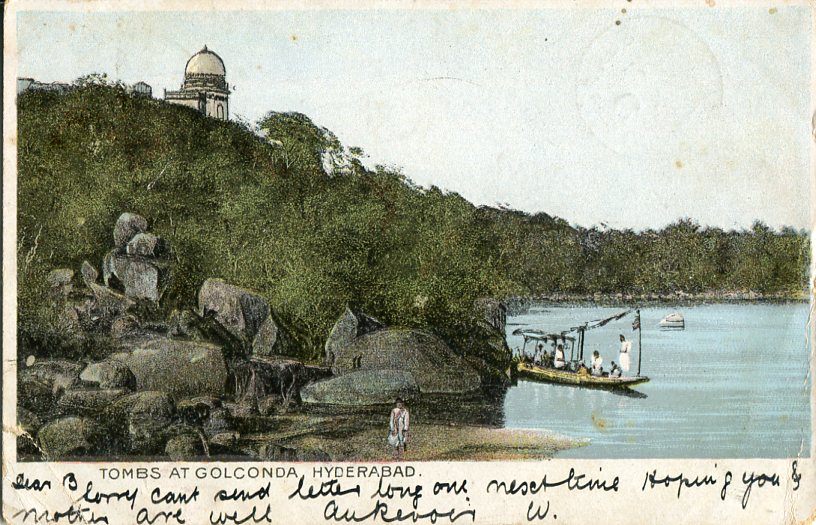 TOMBS AT GOLCONDA, HYDERABAD.
Dear B Sorry cant send letter long one nesct time Hoping you &
mother are well Aurevoir W.